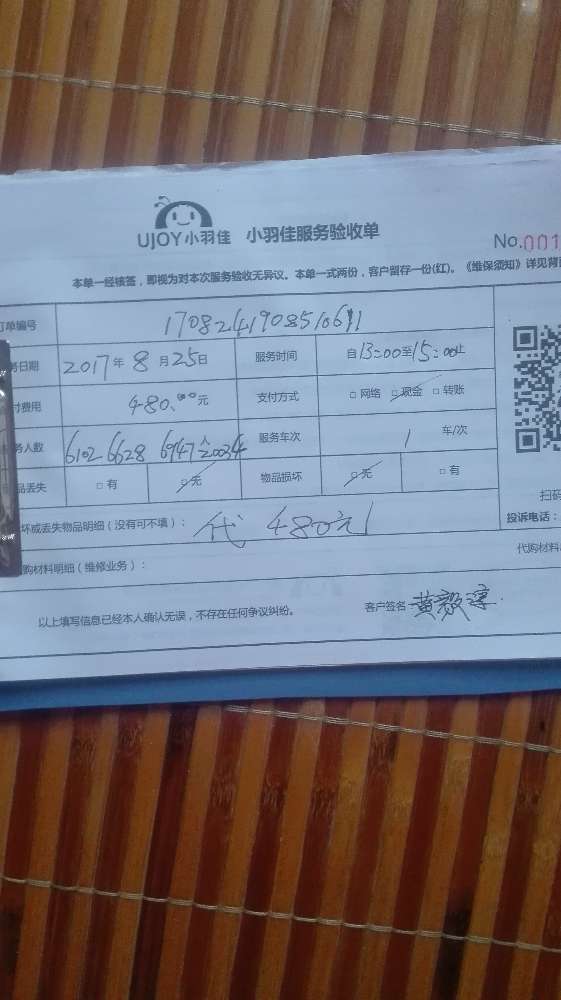 UJOY小羽佳 小羽佳服务验收单
No.001
本单一经核签,即视为对本次服务验收无异议。本单一式两份,客户留存一份(红)。《维保须知》详见背
单编号 170824190851061
日期 2017年8月25日 服务时间 自13:00至15:00止
费用 480.00元 支付方式 □网络 □现金 □转账
人数 6102 6628 6947 服务车次 1 车/次
品丢失 □有 □无 物品损坏 □无 □有
扫码
坏或丢失物品明细(没有可不填): 代 480元
投诉电话:
购材料明细(维修业务):
代购材料
以上填写信息已经本人确认无误,不存在任何争议纠纷。 客户签名 黄毅淳